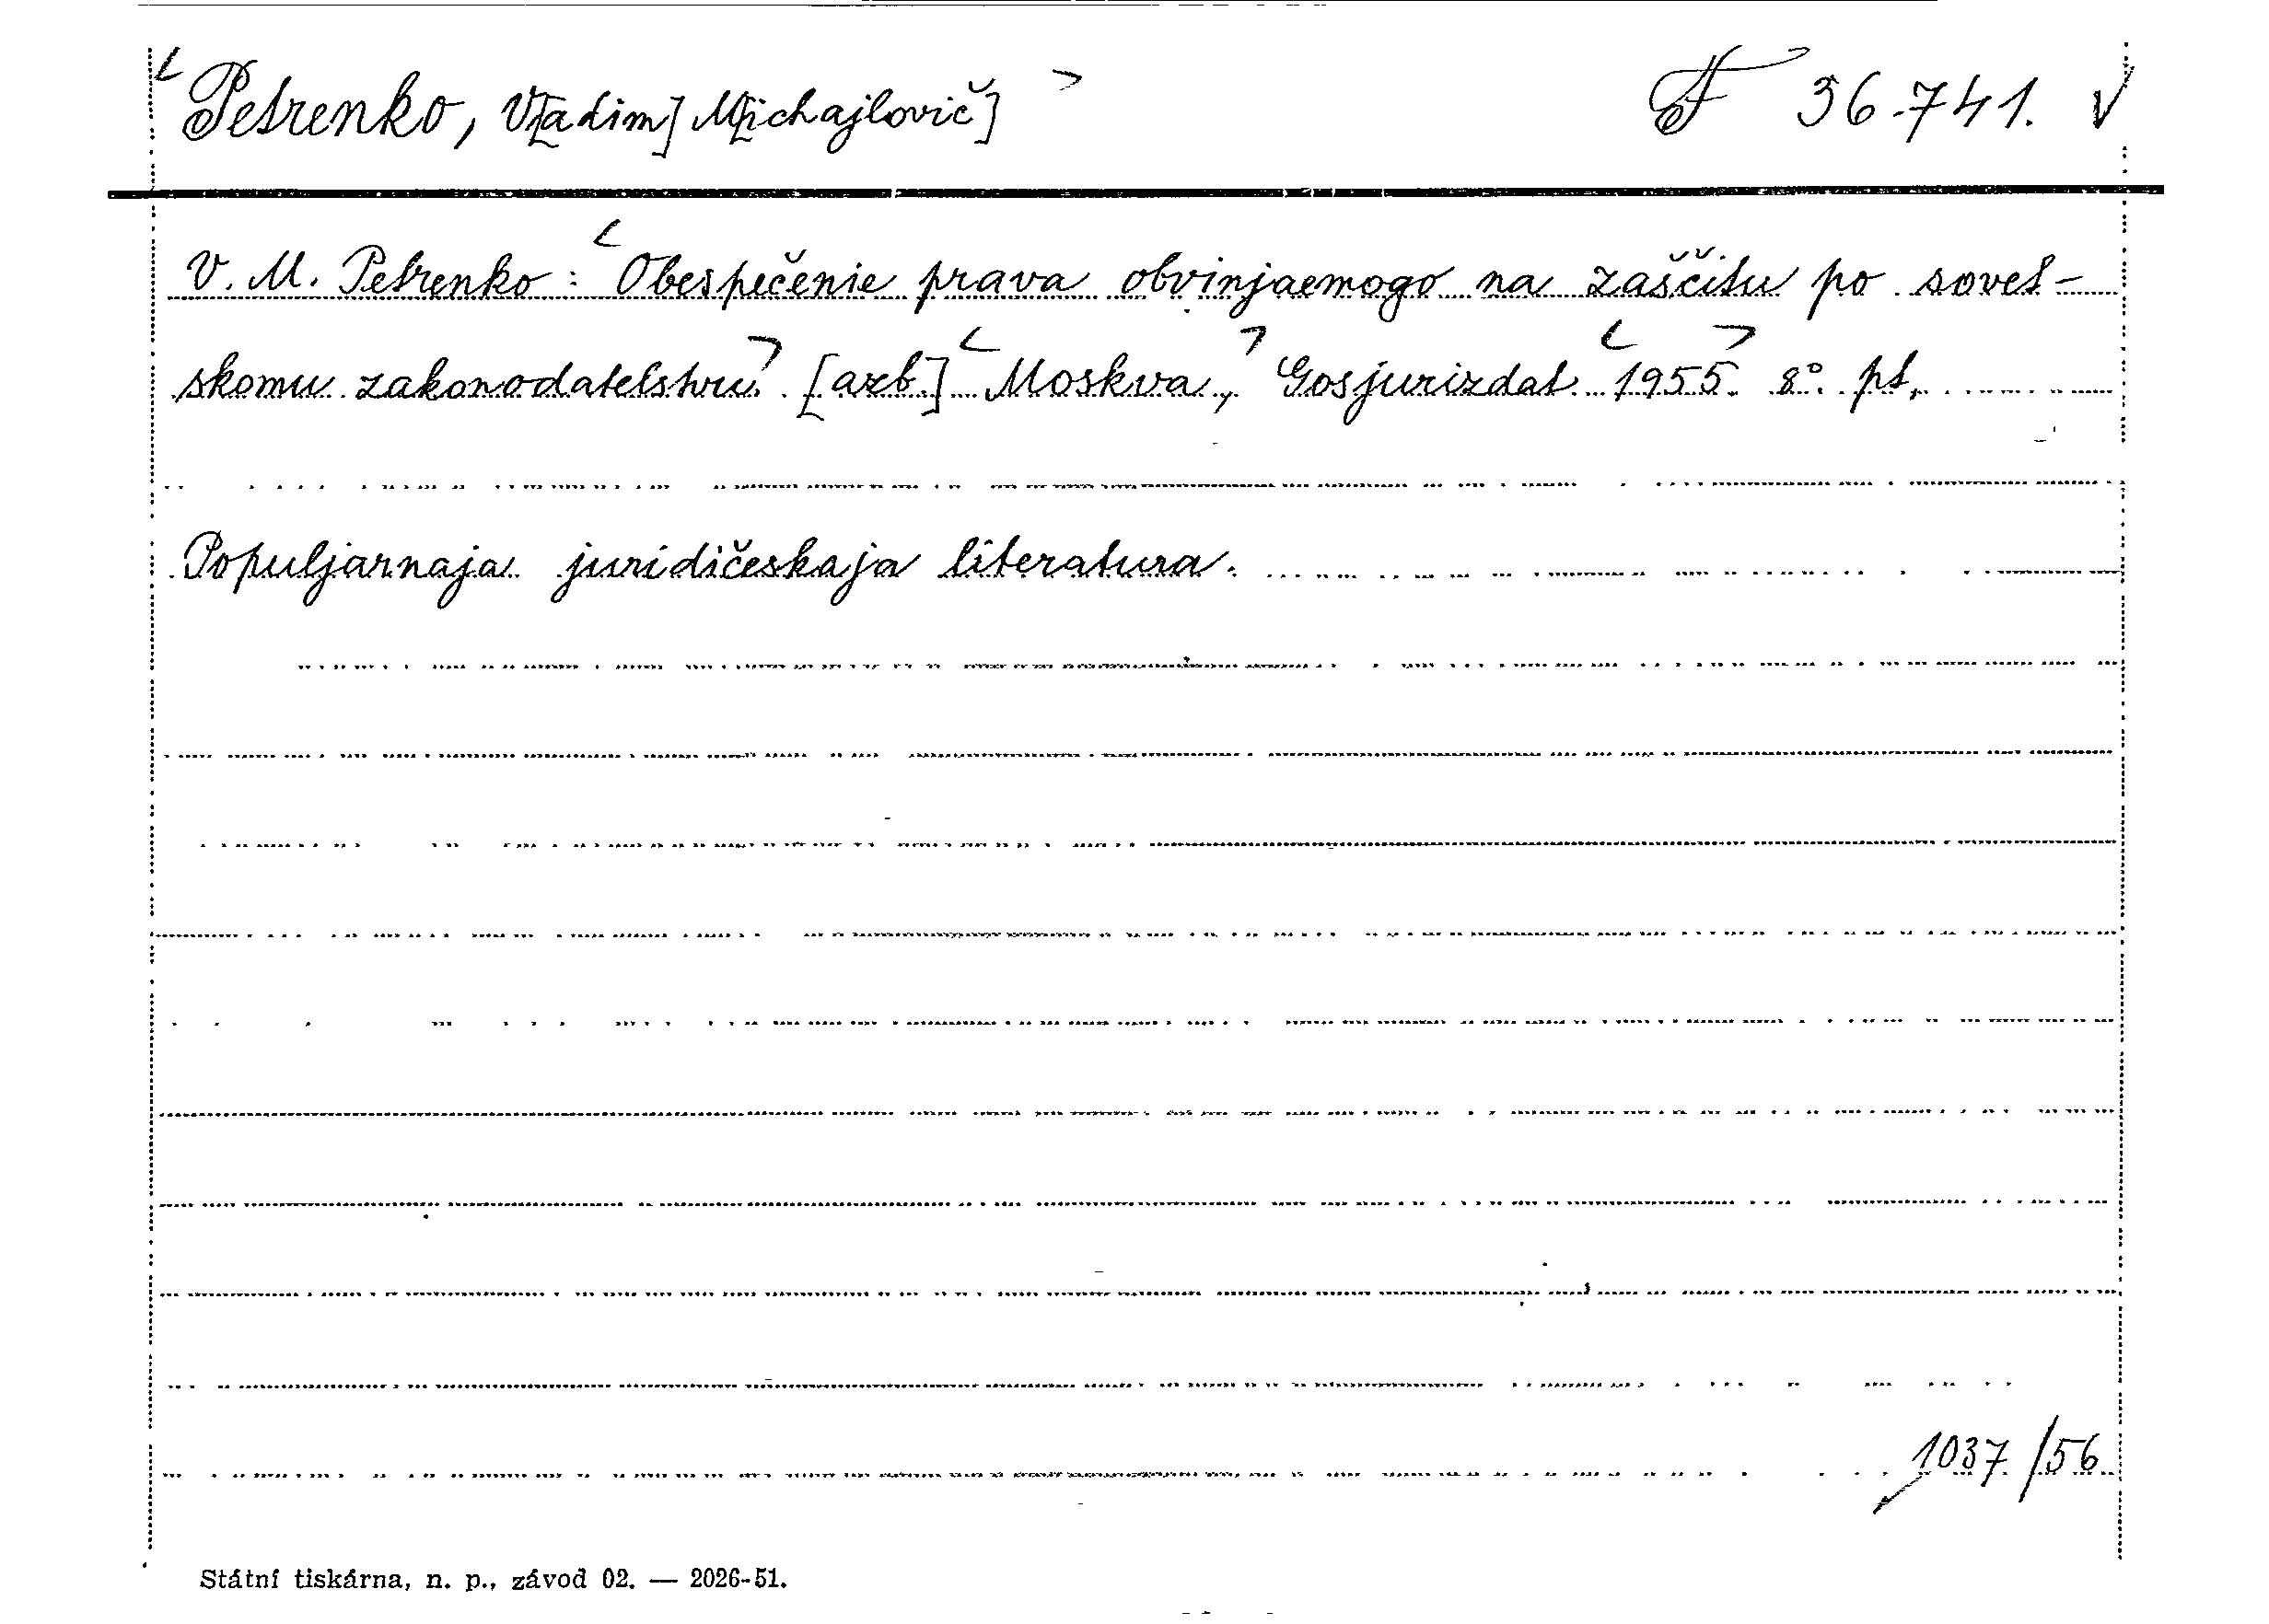 Petrenko, V[adim] M[ichajlovič] F 36.741.
V. M. Petrenko: Obespečenie prava obvinjaemogo na zaščitu po sovet-
skomu zakonodatelstvu. [azb.] Moskva, Gosjurizdat 1955. 8°. pt.
Populjarnaja juridičeskaja literatura.
1037/56
Státní tiskárna, n. p., závod 02. — 2026-51.